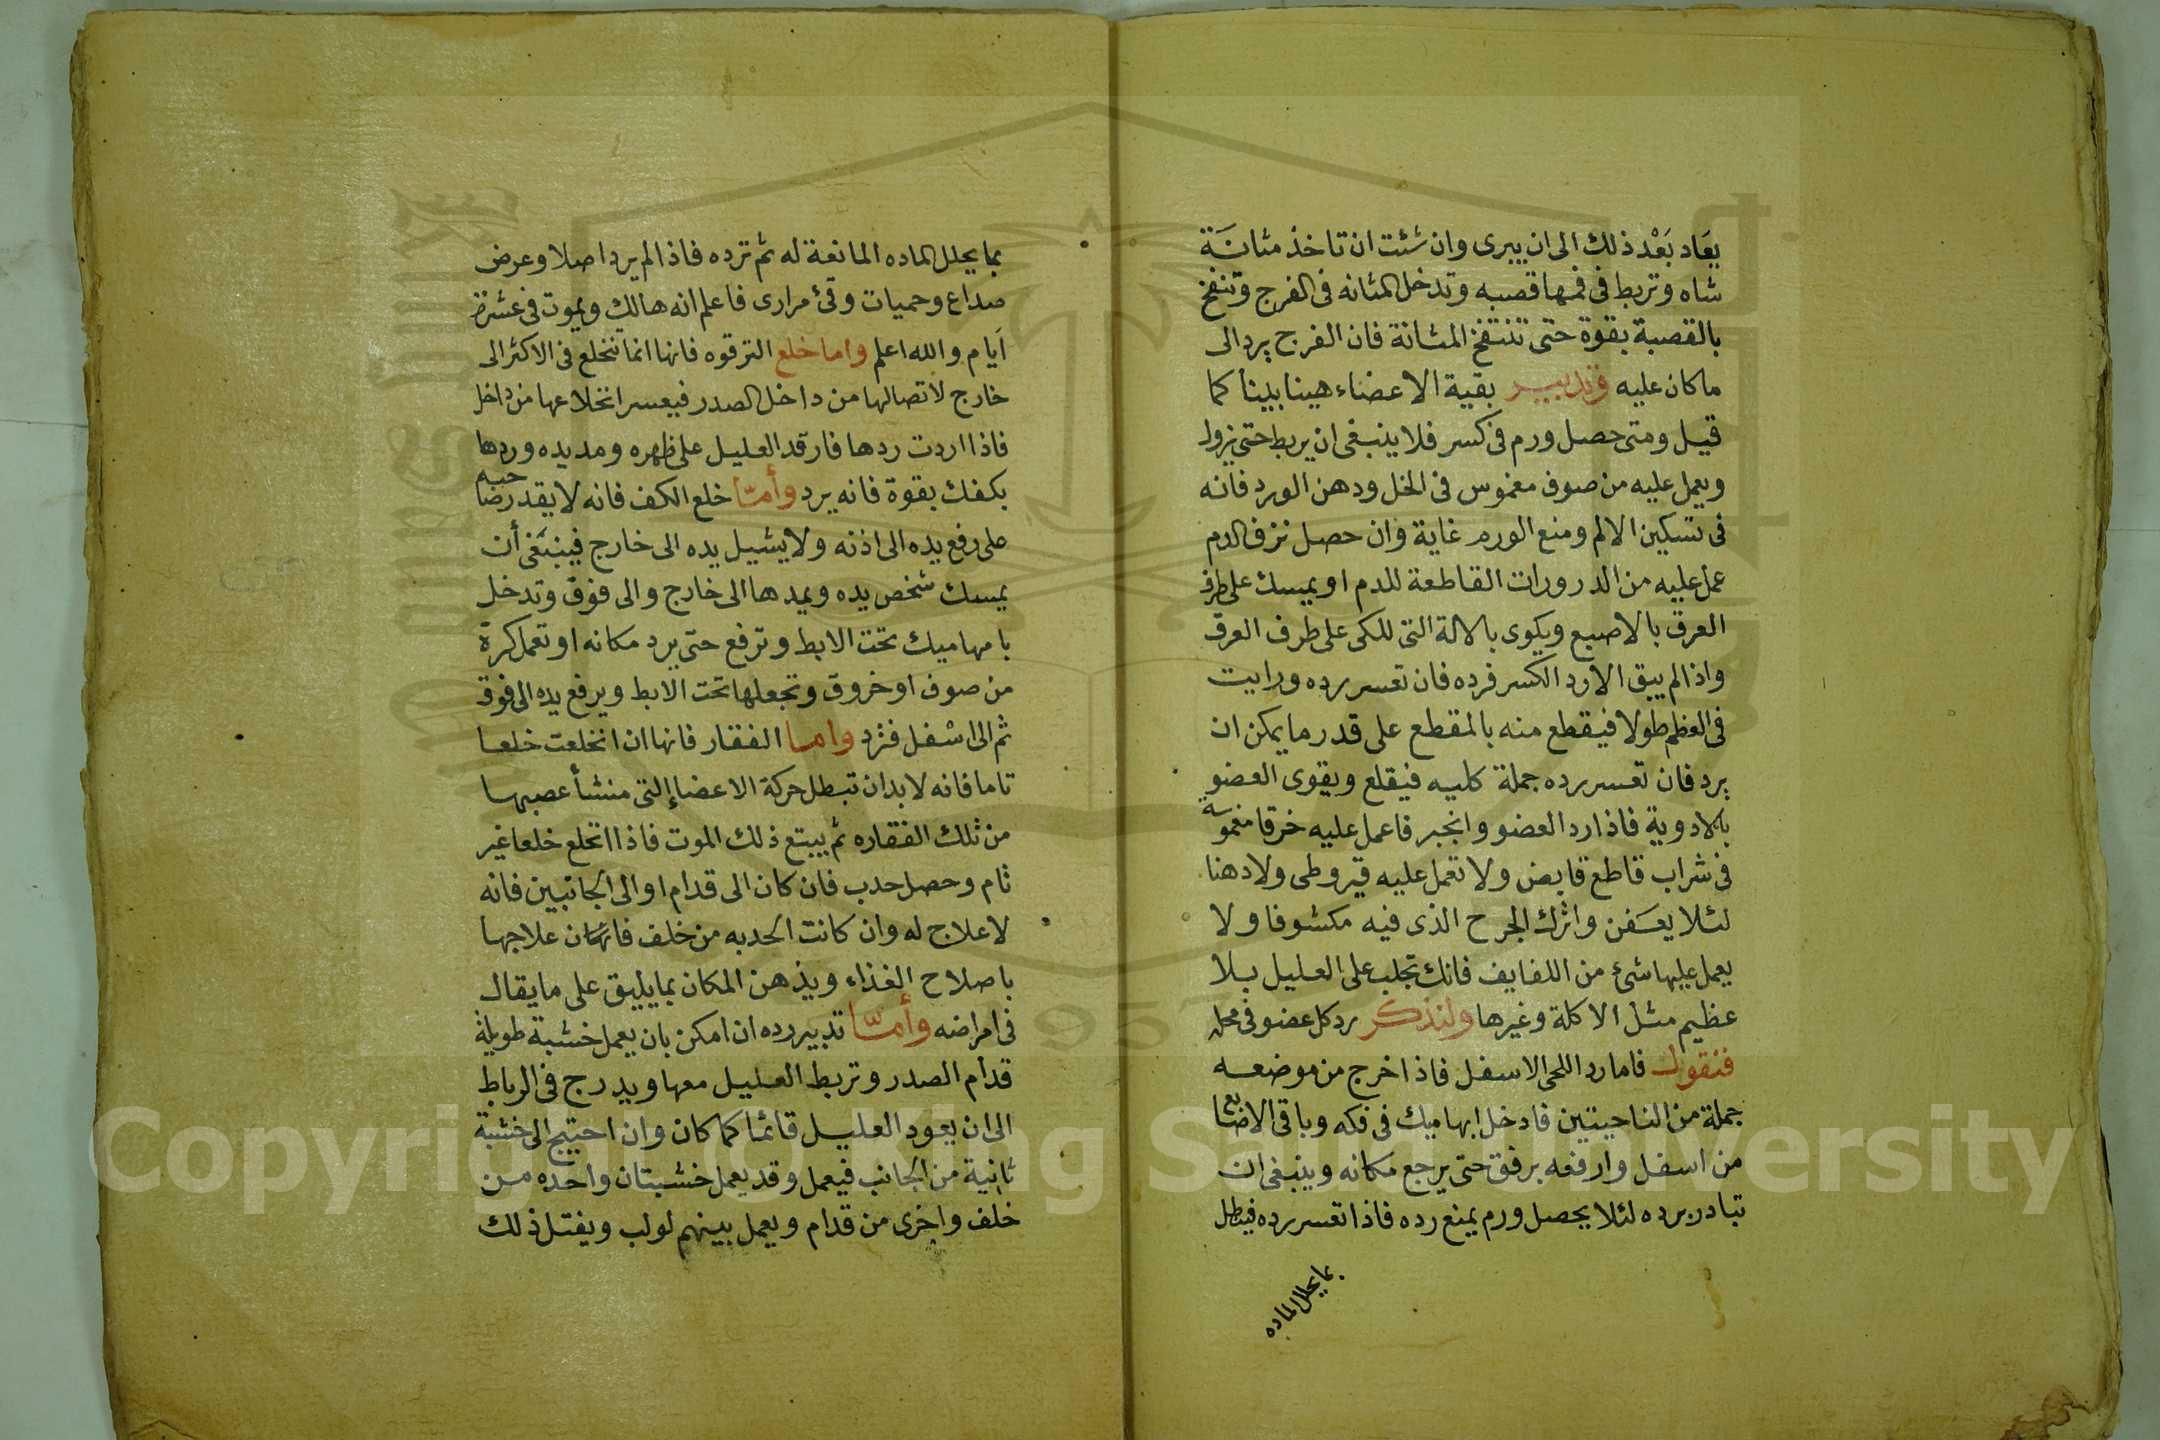 يعَاد بَعْد ذلك الى ان يبرى وان شئت ان تاخذ مثانَة
شاه وتربط فى فمها قصبه وتدخل المثانه فى الفرج وتنفخ
بالقصبة بقوة حتى تنتفخ المثانة فان الفرج يرد الى
ما كان عليه وتدبير بقية الاعضاء هينا بينا كما
قيل ومتى حصل ورم فى كسر فلا ينبغى ان يربط حتى يزول
ويعمل عليه من صوف مغموس فى الخل ودهن الورد فانه
فى تسكين الالم ومنع الورم غاية وان حصل نزف الدم
عمل عليه من الدرورات القاطعة للدم او يمسك على طرف
العرق بالاصبع ويكوى بالالة التى للكى على طرف العرق
واذا لم يبق الا رد الكسر فرده فان تعسر رده ورايت
فى العظم طولا فيقطع منه بالمقطع على قدر ما يمكن ان
يرد فان تعسر رده جملة كليه فيقلع ويقوى العضو
بالادوية فاذا رد العضو وانجبر فاعمل عليه خرقا مغموسه
فى شراب قاطع قابض ولا تعمل عليه قيروطى ولا دهنا
لئلا يعَفن واترك الجرح الذى فيه مكشوفا ولا
يعمل عليها شئ من اللفايف فانك تجلب على العليل بلا
عظيم مثل الاكلة وغيرها ولنذكر رد كل عضو فى محله
فنقول فاما رد اللحى الاسفل فاذا خرج من موضعه
جملة من الناحيتين فادخل ابهاميك فى فكه وباقى الاصابع
من اسفل وارفعه برفق حتى يرجع مكانه وينبغى ان
تبادر برده لئلا يحصل ورم يمنع رده فاذا تعسر رده فينطل
بما يحلل الماده
بما يحلل الماده المانعة له ثم ترده فاذا لم يرد اصلا وعرض
صداع وحميات وقئ مرارى فاعلم انه هالك ويموت فى عشرة
ايام والله اعلم واما خلع الترقوه فانها انما تنخلع فى الاكثر الى
خارج لاتصالها من داخل الصدر فيعسر انخلاعها من داخل
فاذا اردت ردها فارقد العليل على ظهره ومد يده وردها
بكفك بقوة فانه يرد وأمّا خلع الكف فانه لا يقدر صاحبه
على رفع يده الى اذنه ولا يشيل يده الى خارج فينبَغى أن
يمسك شخص يده ويمدها الى خارج والى فوق وتدخل
بامهاميك تحت الابط وترفع حتى يرد مكانه او تعمل كرة
من صوف او خروق وتجعلها تحت الابط ويرفع يده الى فوق
ثم الى اسفل فترد واما الفقار فانها ان انخلعت خلعا
تاما فانه لا بد ان تبطل حركة الاعضاء التى منشأ عصبها
من تلك الفقاره ثم يتبع ذلك الموت فاذا انخلع خلعا غير
تام وحصل حدب فان كان الى قدام او الى الجانبين فانه
لا علاج له وان كانت الحدبه من خلف فان كان علاجها
باصلاح الغذاء ويذهن المكان بما يليق على ما يقال
فى امراضه وأمّا تدبير رده ان امكن بان يعمل خشبة طويلة
قدام الصدر وتربط العليل معها ويدرج فى الرباط
الى ان يعود العليل قائما كما كان وان احتيج الى خشبة
ثانية من الجانب فيعمل وقد يعمل خشبتان واحده من
خلف واخرى من قدام ويعمل بينهم لولب ويفتل ذلك
Copyright © King Saud University